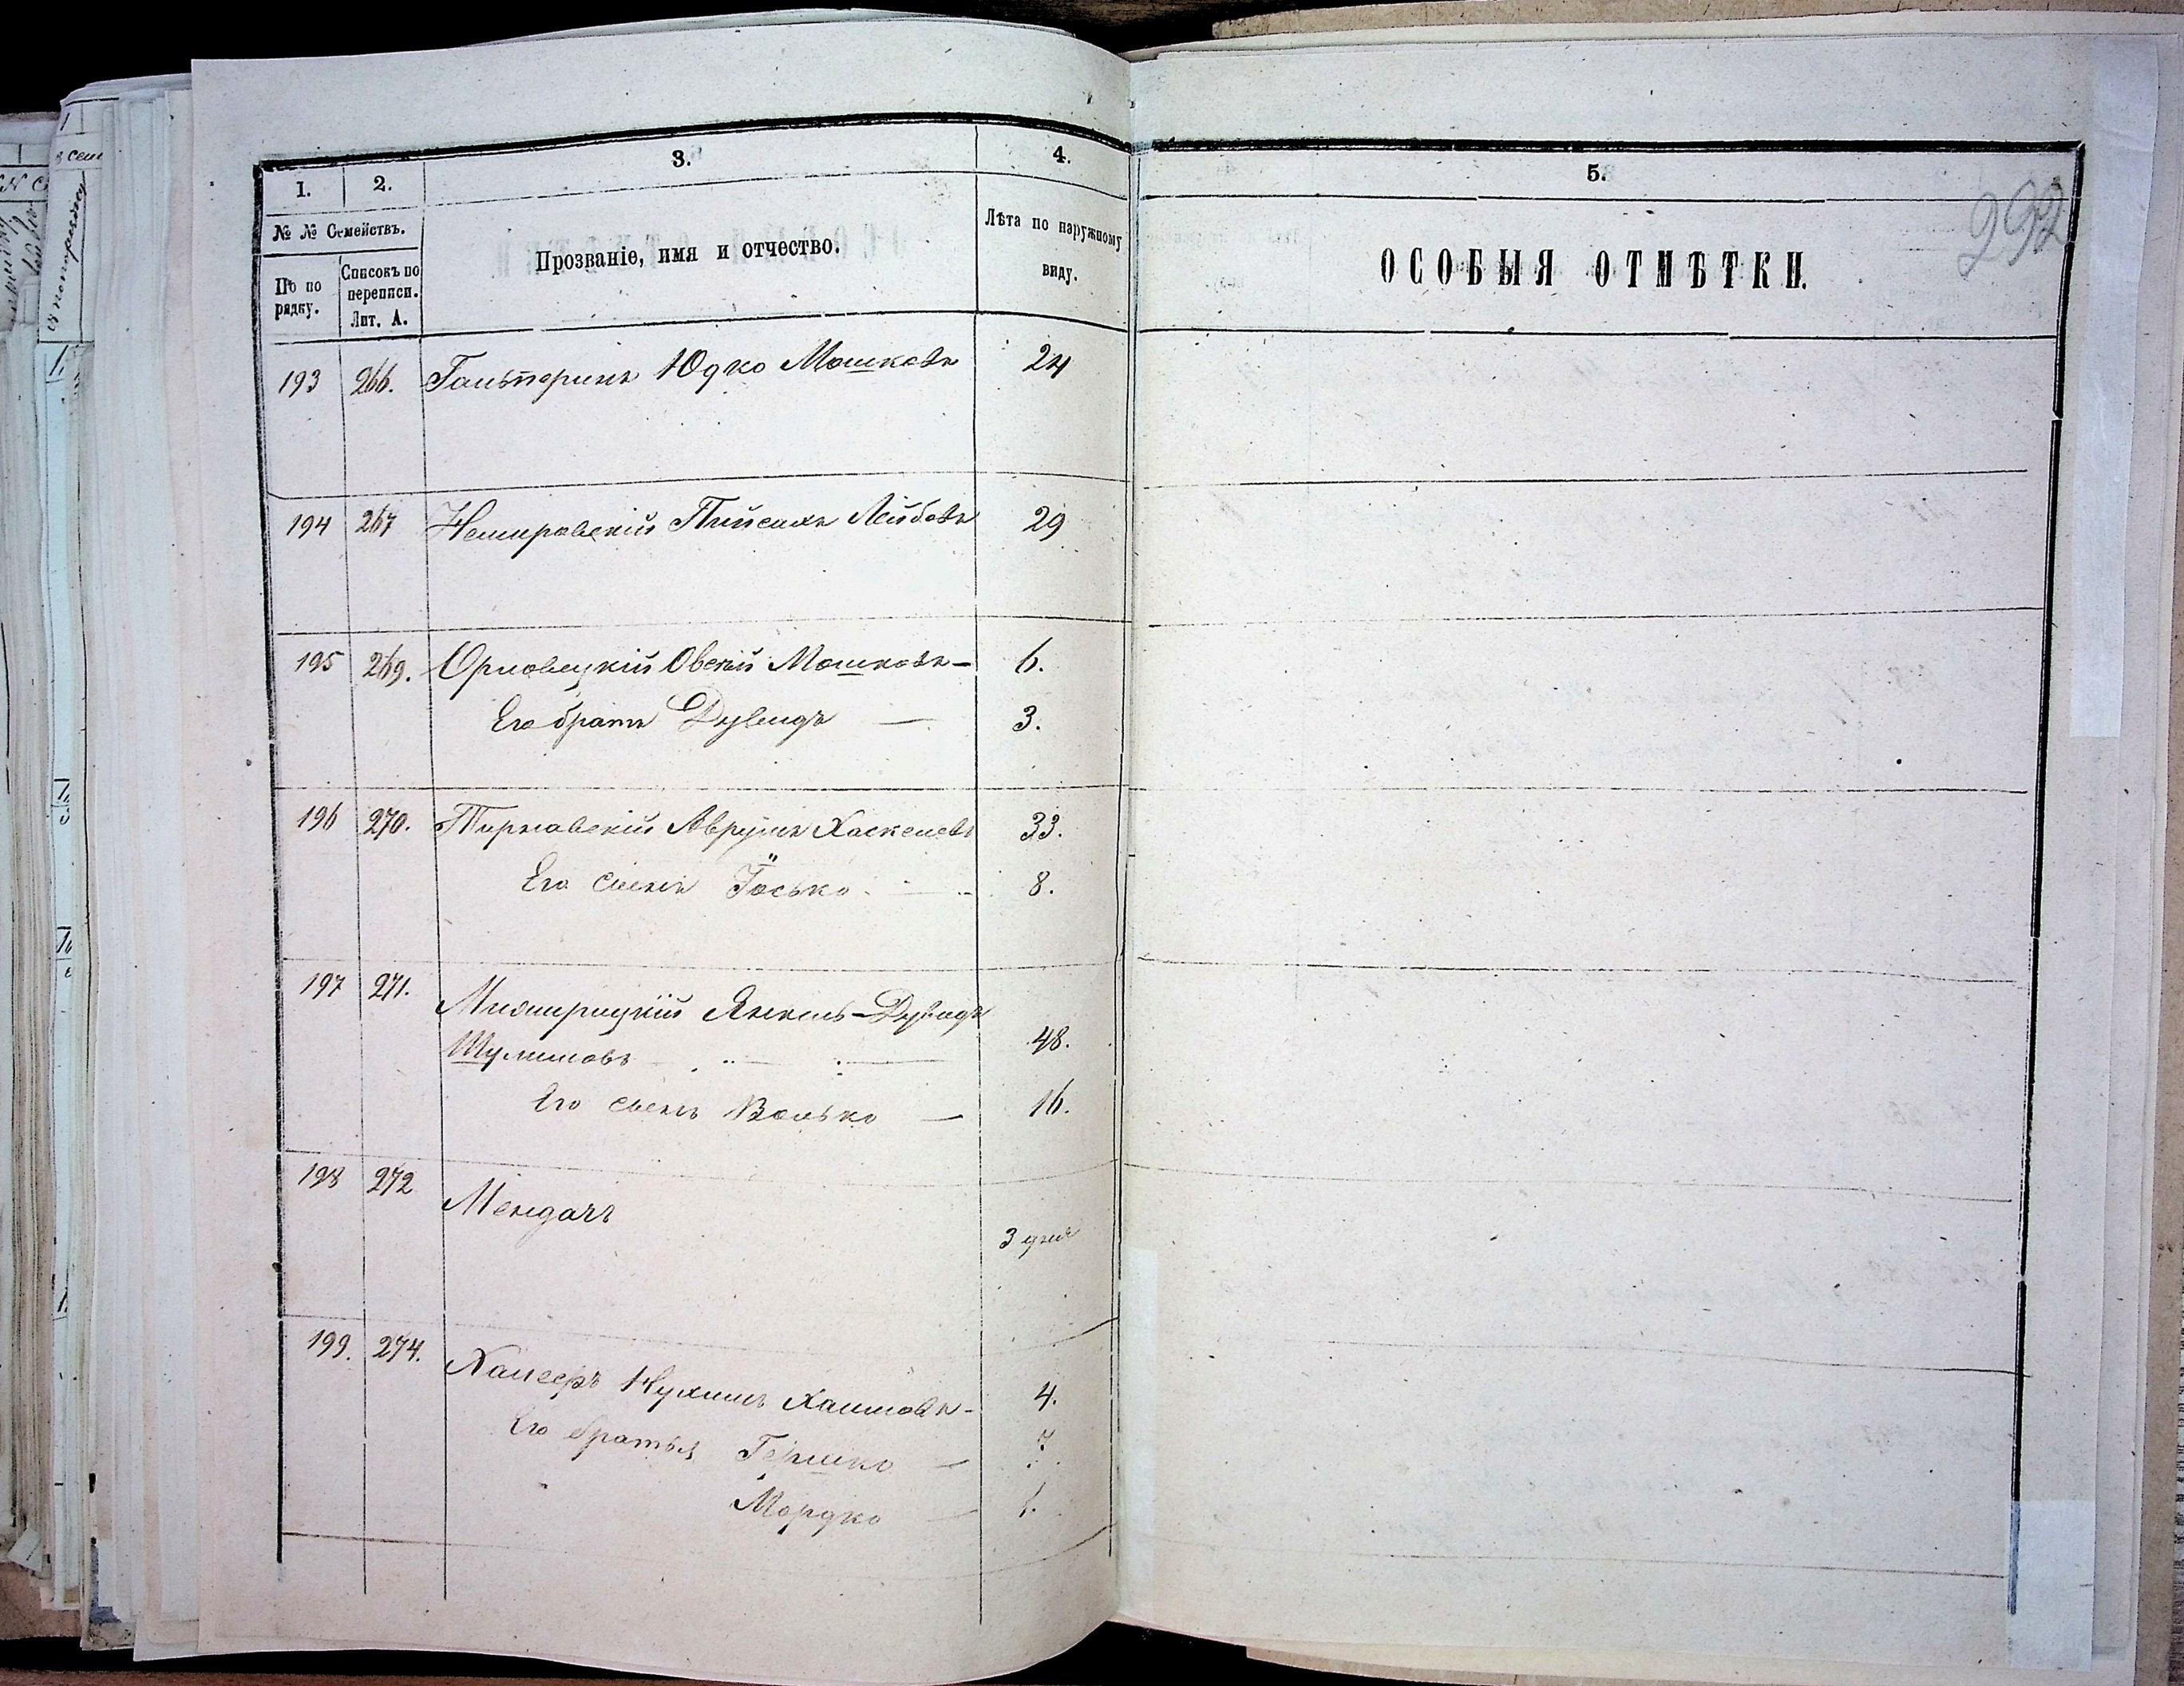 1.
2.
3.
4.
5.
№ № Семействъ.
По по рядку.
Списокъ по переписи. Лит. А.
Прозваніе, имя и отчество.
Лѣта по наружному виду.
ОСОБЫЯ ОТМѢТКИ.
292
193 266. Гальперинъ Юдко Мошковъ 24
194 267 Немировскій Пейсахъ Лейбовъ 29
195 269. Орловецкій Овсій Мошковъ - 6.
Его братъ Дувидъ — 3.
196 270. Тирнавскій Аврумъ Хаскелевъ 33.
Его сынъ Іосько. 8.
197 271. Янкель-Дувидъ
Шулимовъ 48.
Его сынъ Волько — 16.
198 272
3 дня
199. 274. Нухимъ Хаимовъ - 4.
Его братья Гершко —
Мордко — 1.